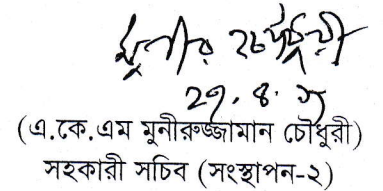 মুনীর চৌধুরী
২৭.৪.১৬
(এ.কে.এম মুনীরুজ্জামান চৌধুরী)
সহকারী সচিব (সংস্থাপন-২)